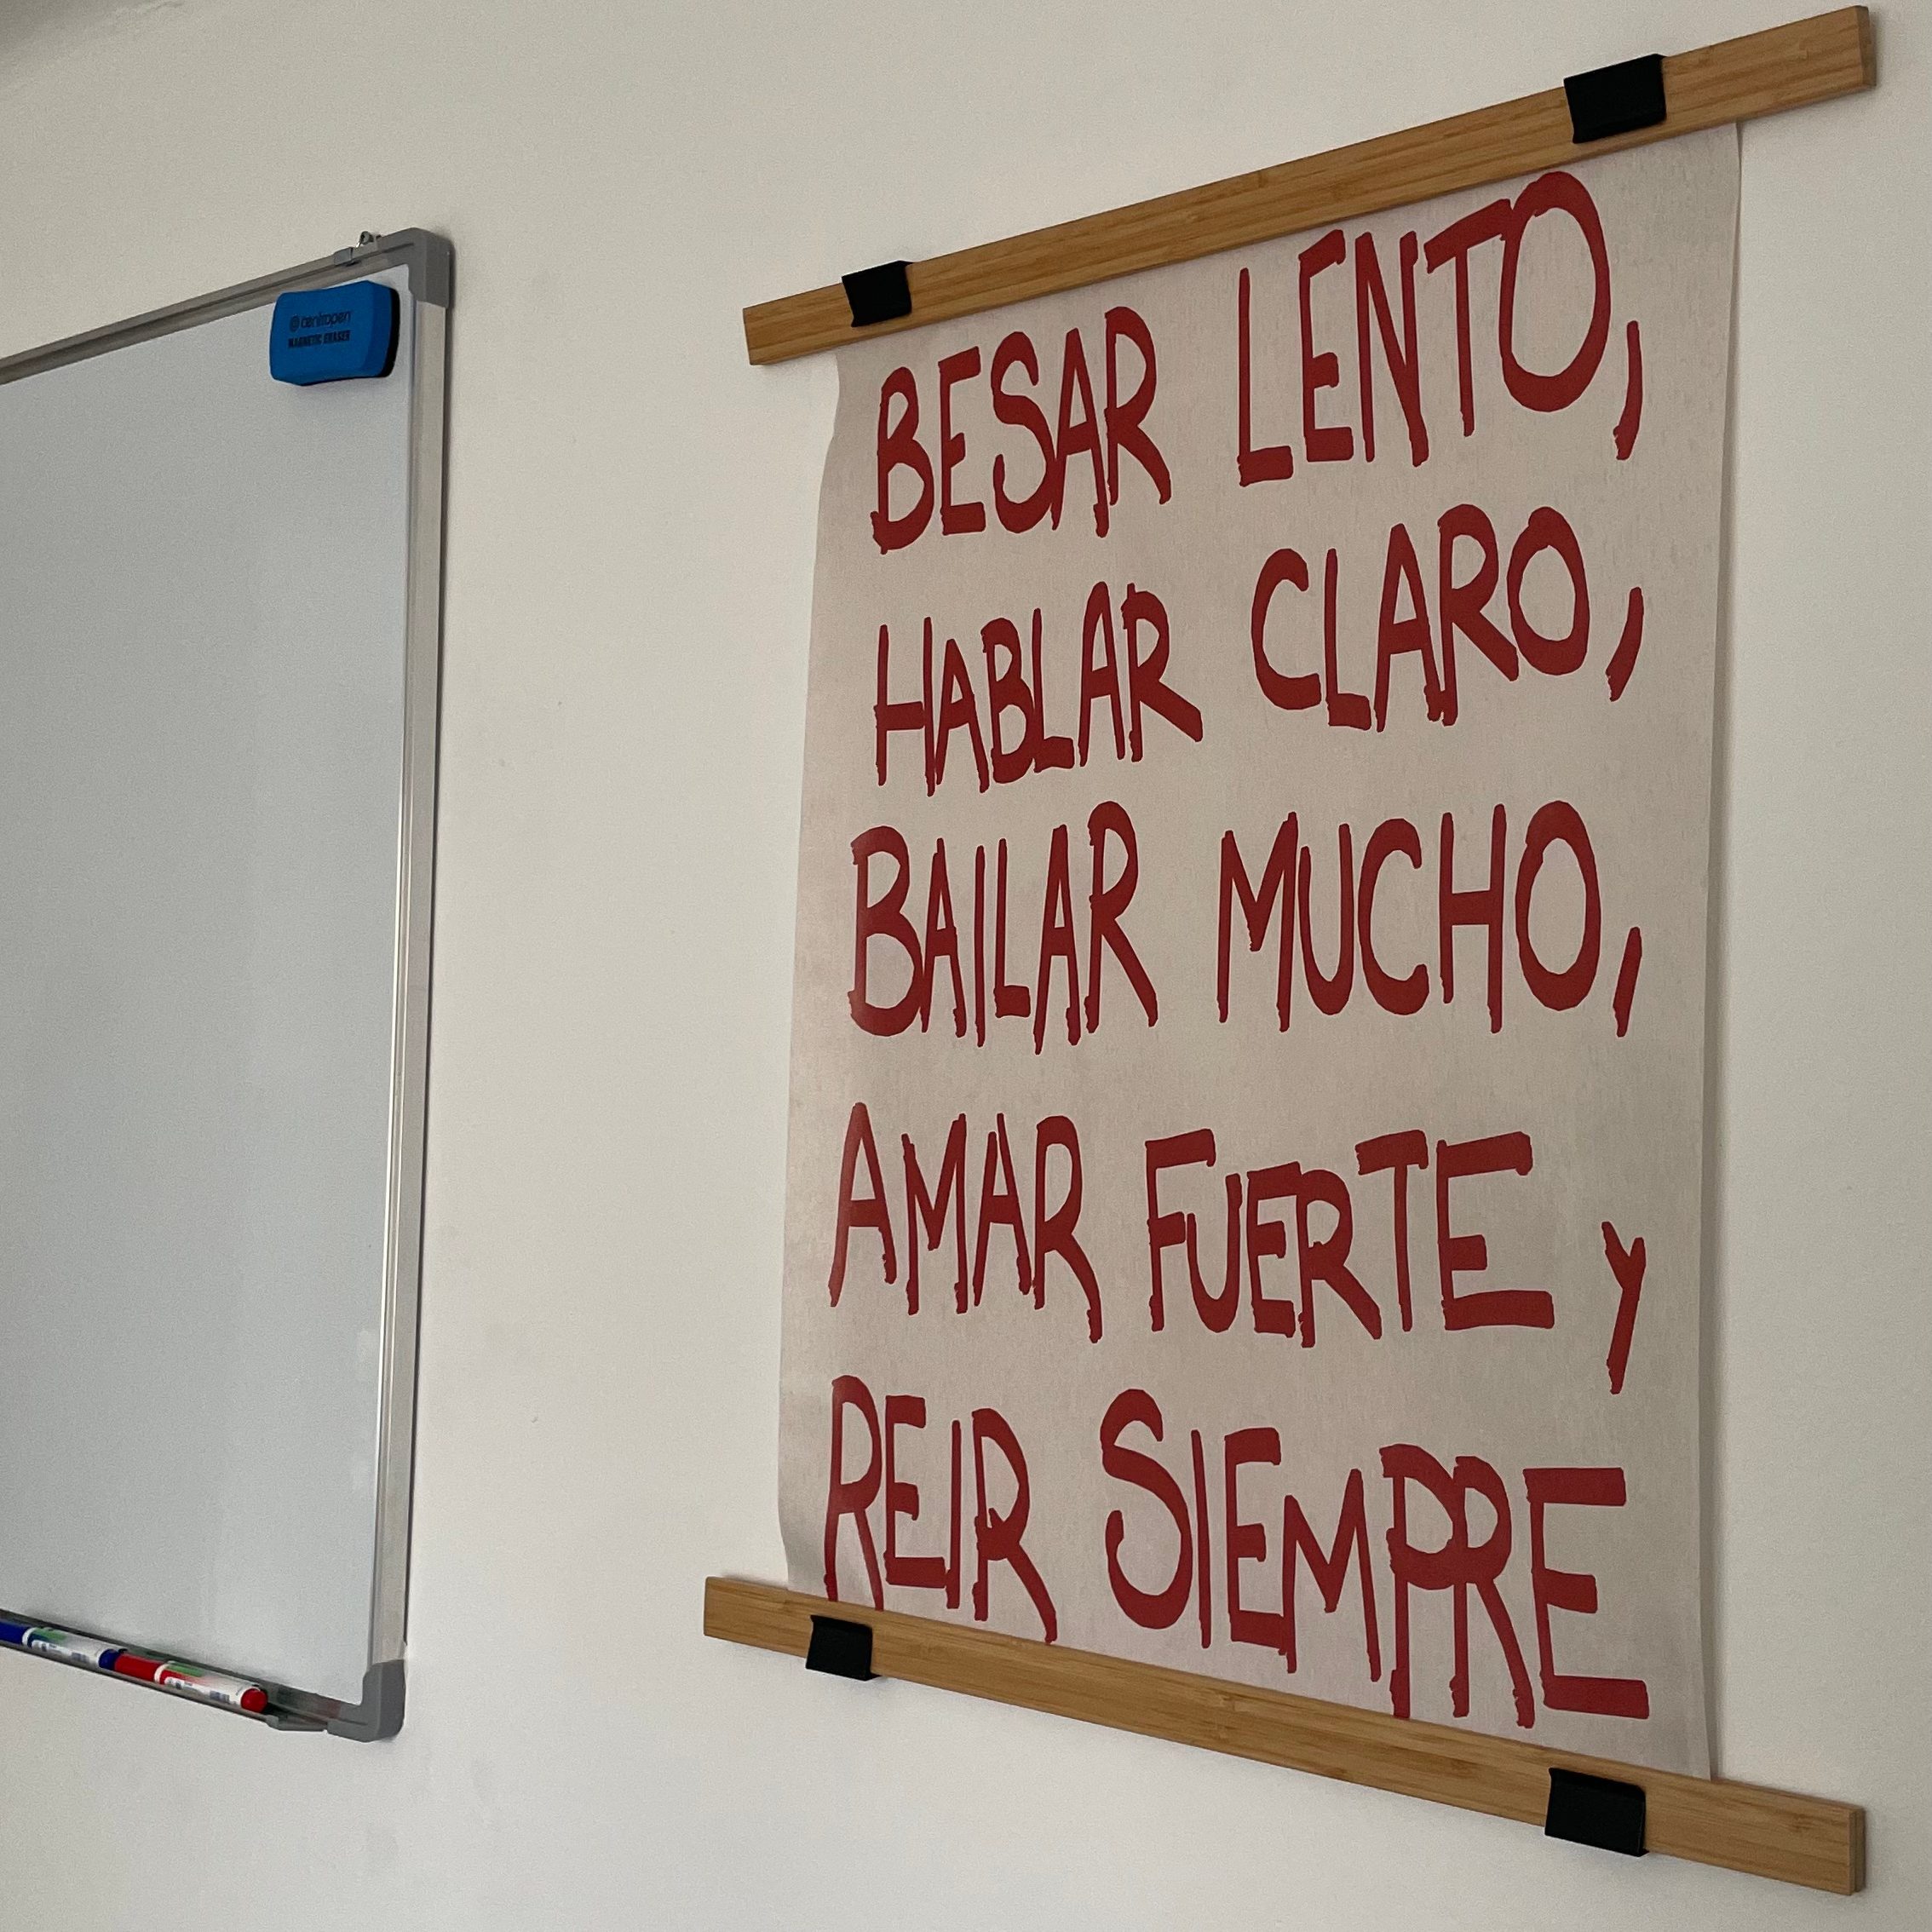 centropen
MAGNETIC ERASER
BESAR LENTO,
HABLAR CLARO,
BAILAR MUCHO,
AMAR FUERTE y
REIR SIEMPRE